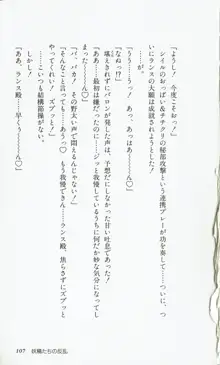 「ようし！　今度こそおっ！」
シイルのおっぱい＆チチクリの秘部攻撃という連携プレーが功を奏して、ついに、つい
にランスの大願は成就されようとしていた。
「うっ……うっ！　あ、あっはぁ……ん♡」
「なぬっ!?」
堪えきれずにバロンが漏らしたのは、予想だにしない甘い吐息であった。
「最初は嫌だったのに……ジッと我慢しているうちに何だか妙な気分になって
まった……ん♡」
「バ、バカ！　その野太い声で悶えるんじゃない！」
「そんなこと言っても……ああっ、もう我慢できん……ランス殿、焦らさずにズブッと
やってくれい！　ズブッと！」
……くいつも結構節操がない。
しかし……
「ああ、ランス殿……早くぅ……ん♡」
107　妖精たちの反乱